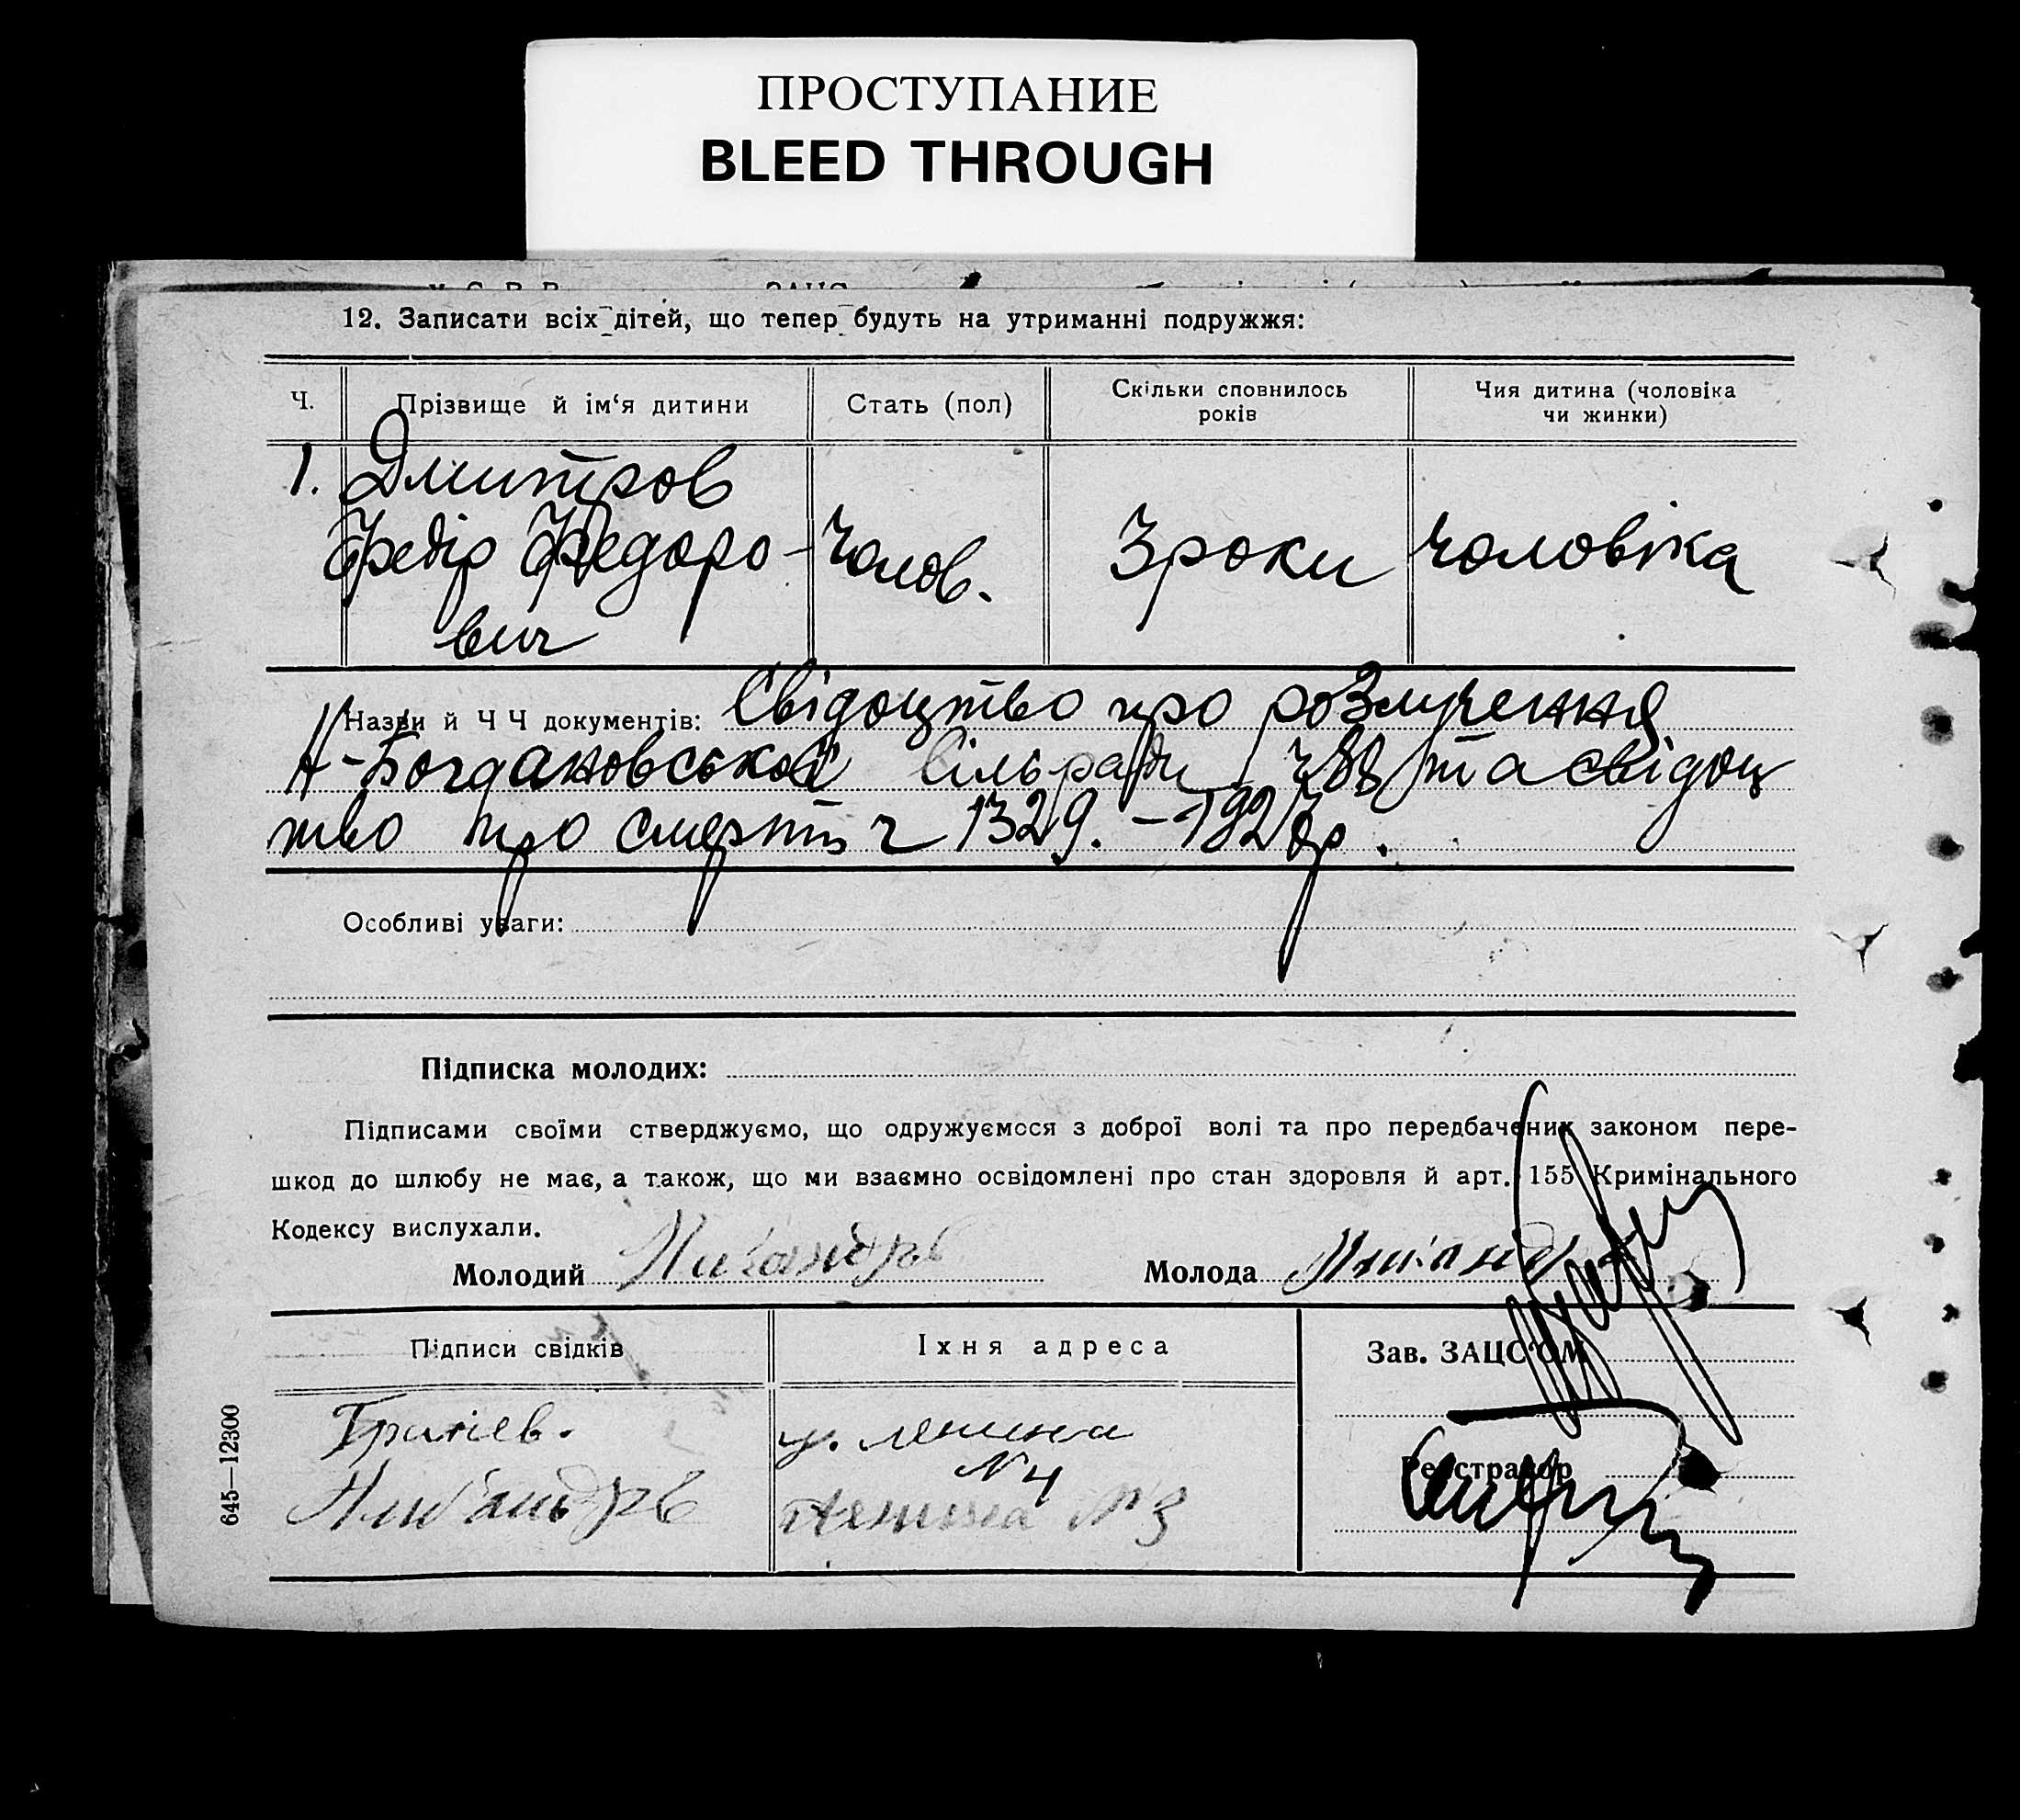 ПРОСТУПАНИЕ
BLEED THROUGH
12. Записати всіх дітей, що тепер будуть на утриманні подружжя:
Ч.
Прізвище й ім‘я дитини
Стать (пол)
Скільки сповнилось
років
Чия дитина (чоловіка
чи жинки)
1. Дмитров
Федір Федоро-
вич
Чолов.
3 роки
чоловіка
Назви й Ч Ч документів: Свідоцтво про розлучення
Н-Богдановської Сільради ч 88 та свідоц
тво про смерть ч 1329. – 1927 р.
Особливі уваги:
Підписка молодих:
Підписами своїми стверджуємо, що одружуємося з доброї волі та про передбачених законом пере-
шкод до шлюбу не має, а також, що ми взаємно освідомлені про стан здоровля й арт. 155 Кримінального
Кодексу вислухали.
Молодий
Молода
Підписи свідків
Їхня адреса
Зав. ЗАЦС‘ОМ
у. Ленина
N 4
Ленина N 3
Реєстратор
645—12300